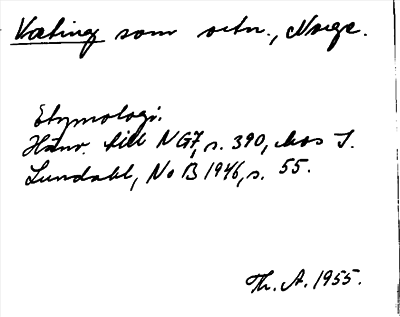 Væting som ortn., Norge.
Etymologi.
Hänv. till NG7, s. 390, hos I.
Lundahl, NoB 1946, s. 55.
Th. A. 1955.